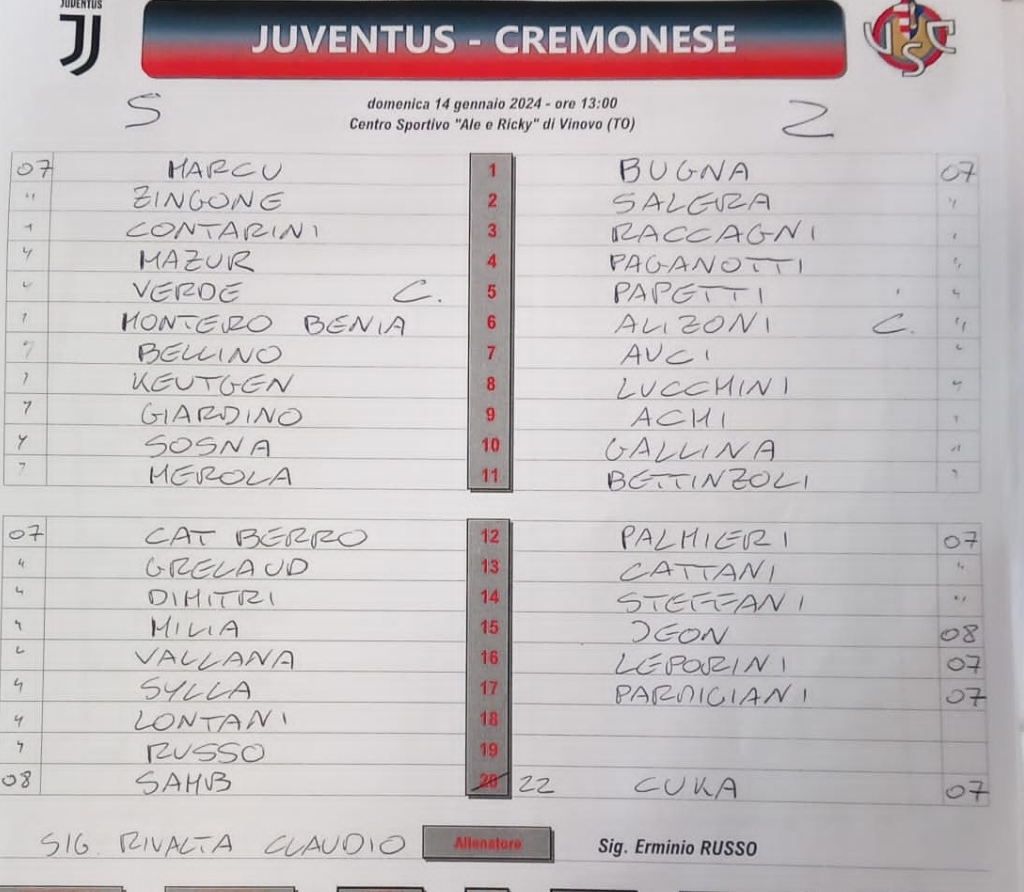 JUVENTUS
JUVENTUS - CREMONESE
domenica 14 gennaio 2024 - ore 13:00
5 2
Centro Sportivo "Ale e Ricky" di Vinovo (TO)
07 MARCU 1 BUGNA 07
" ZINGONE 2 SALERA "
" CONTARINI 3 RACCAGNI "
" MAZUR 4 PAGANOTTI "
" VERDE C. 5 PAPETTI "
" MONTERO BENIA 6 ALIZONI C. "
" BELLINO 7 AUCI "
" KEUTGEN 8 LUCCHINI "
" GIARDINO 9 ACHI "
" SOSNA 10 GALLINA "
" MEROLA 11 BETTINZOLI "
07 CAT BERRO 12 PALMIERI 07
" GRELAUD 13 CATTANI "
" DIMITRI 14 STEFFANI "
" MILIA 15 JEON 08
" VALLANA 16 LEPORINI 07
" SYLLA 17 PARMIGIANI 07
" LONTANI 18
" RUSSO 19
08 SAMB 20 22 CUKA 07
SIG. RIVALTA CLAUDIO Allenatore Sig. Erminio RUSSO